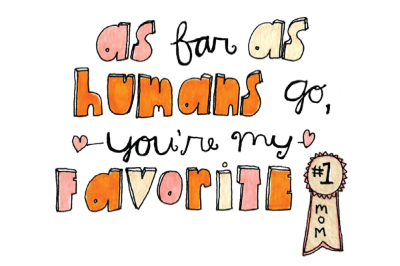 as far as
humans go,
you're my
favorite
#1
mom